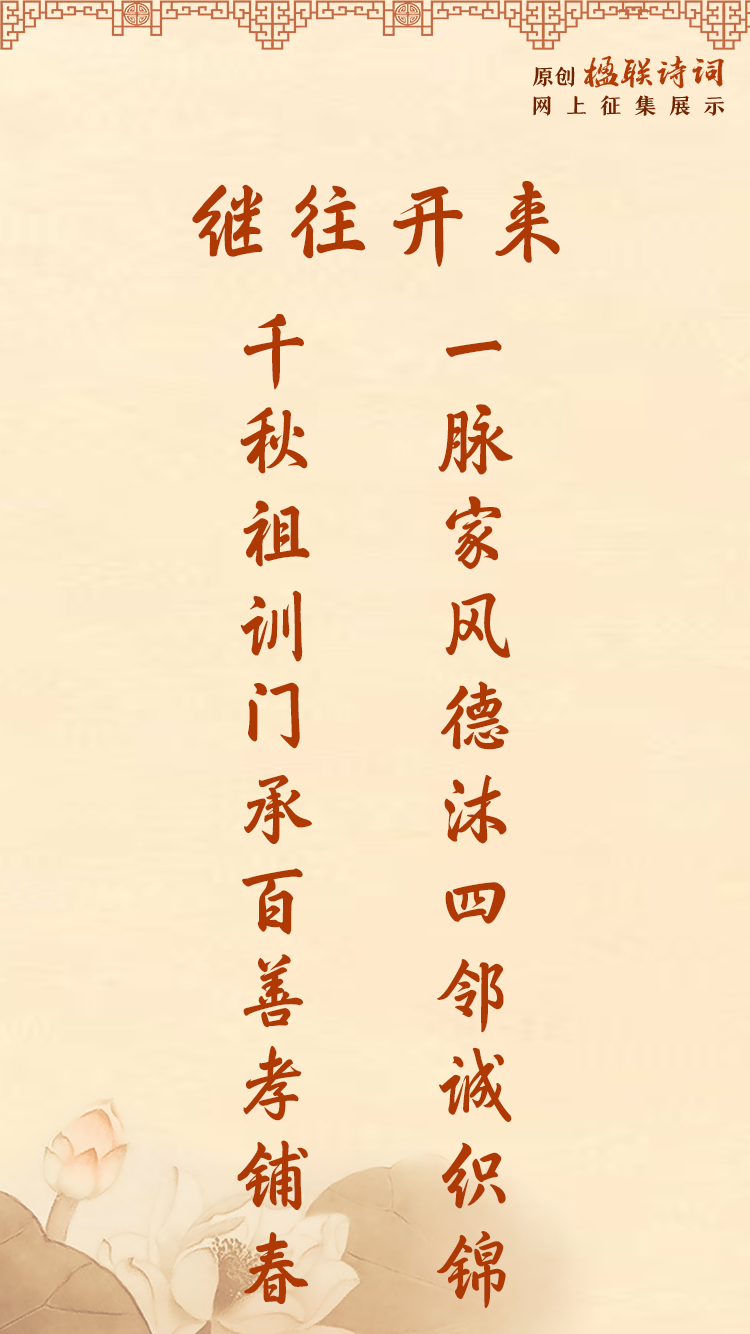 原创楹联诗词
网上征集展示
继往开来
一脉家风德沐四邻诚织锦
千秋祖训门承百善孝铺春